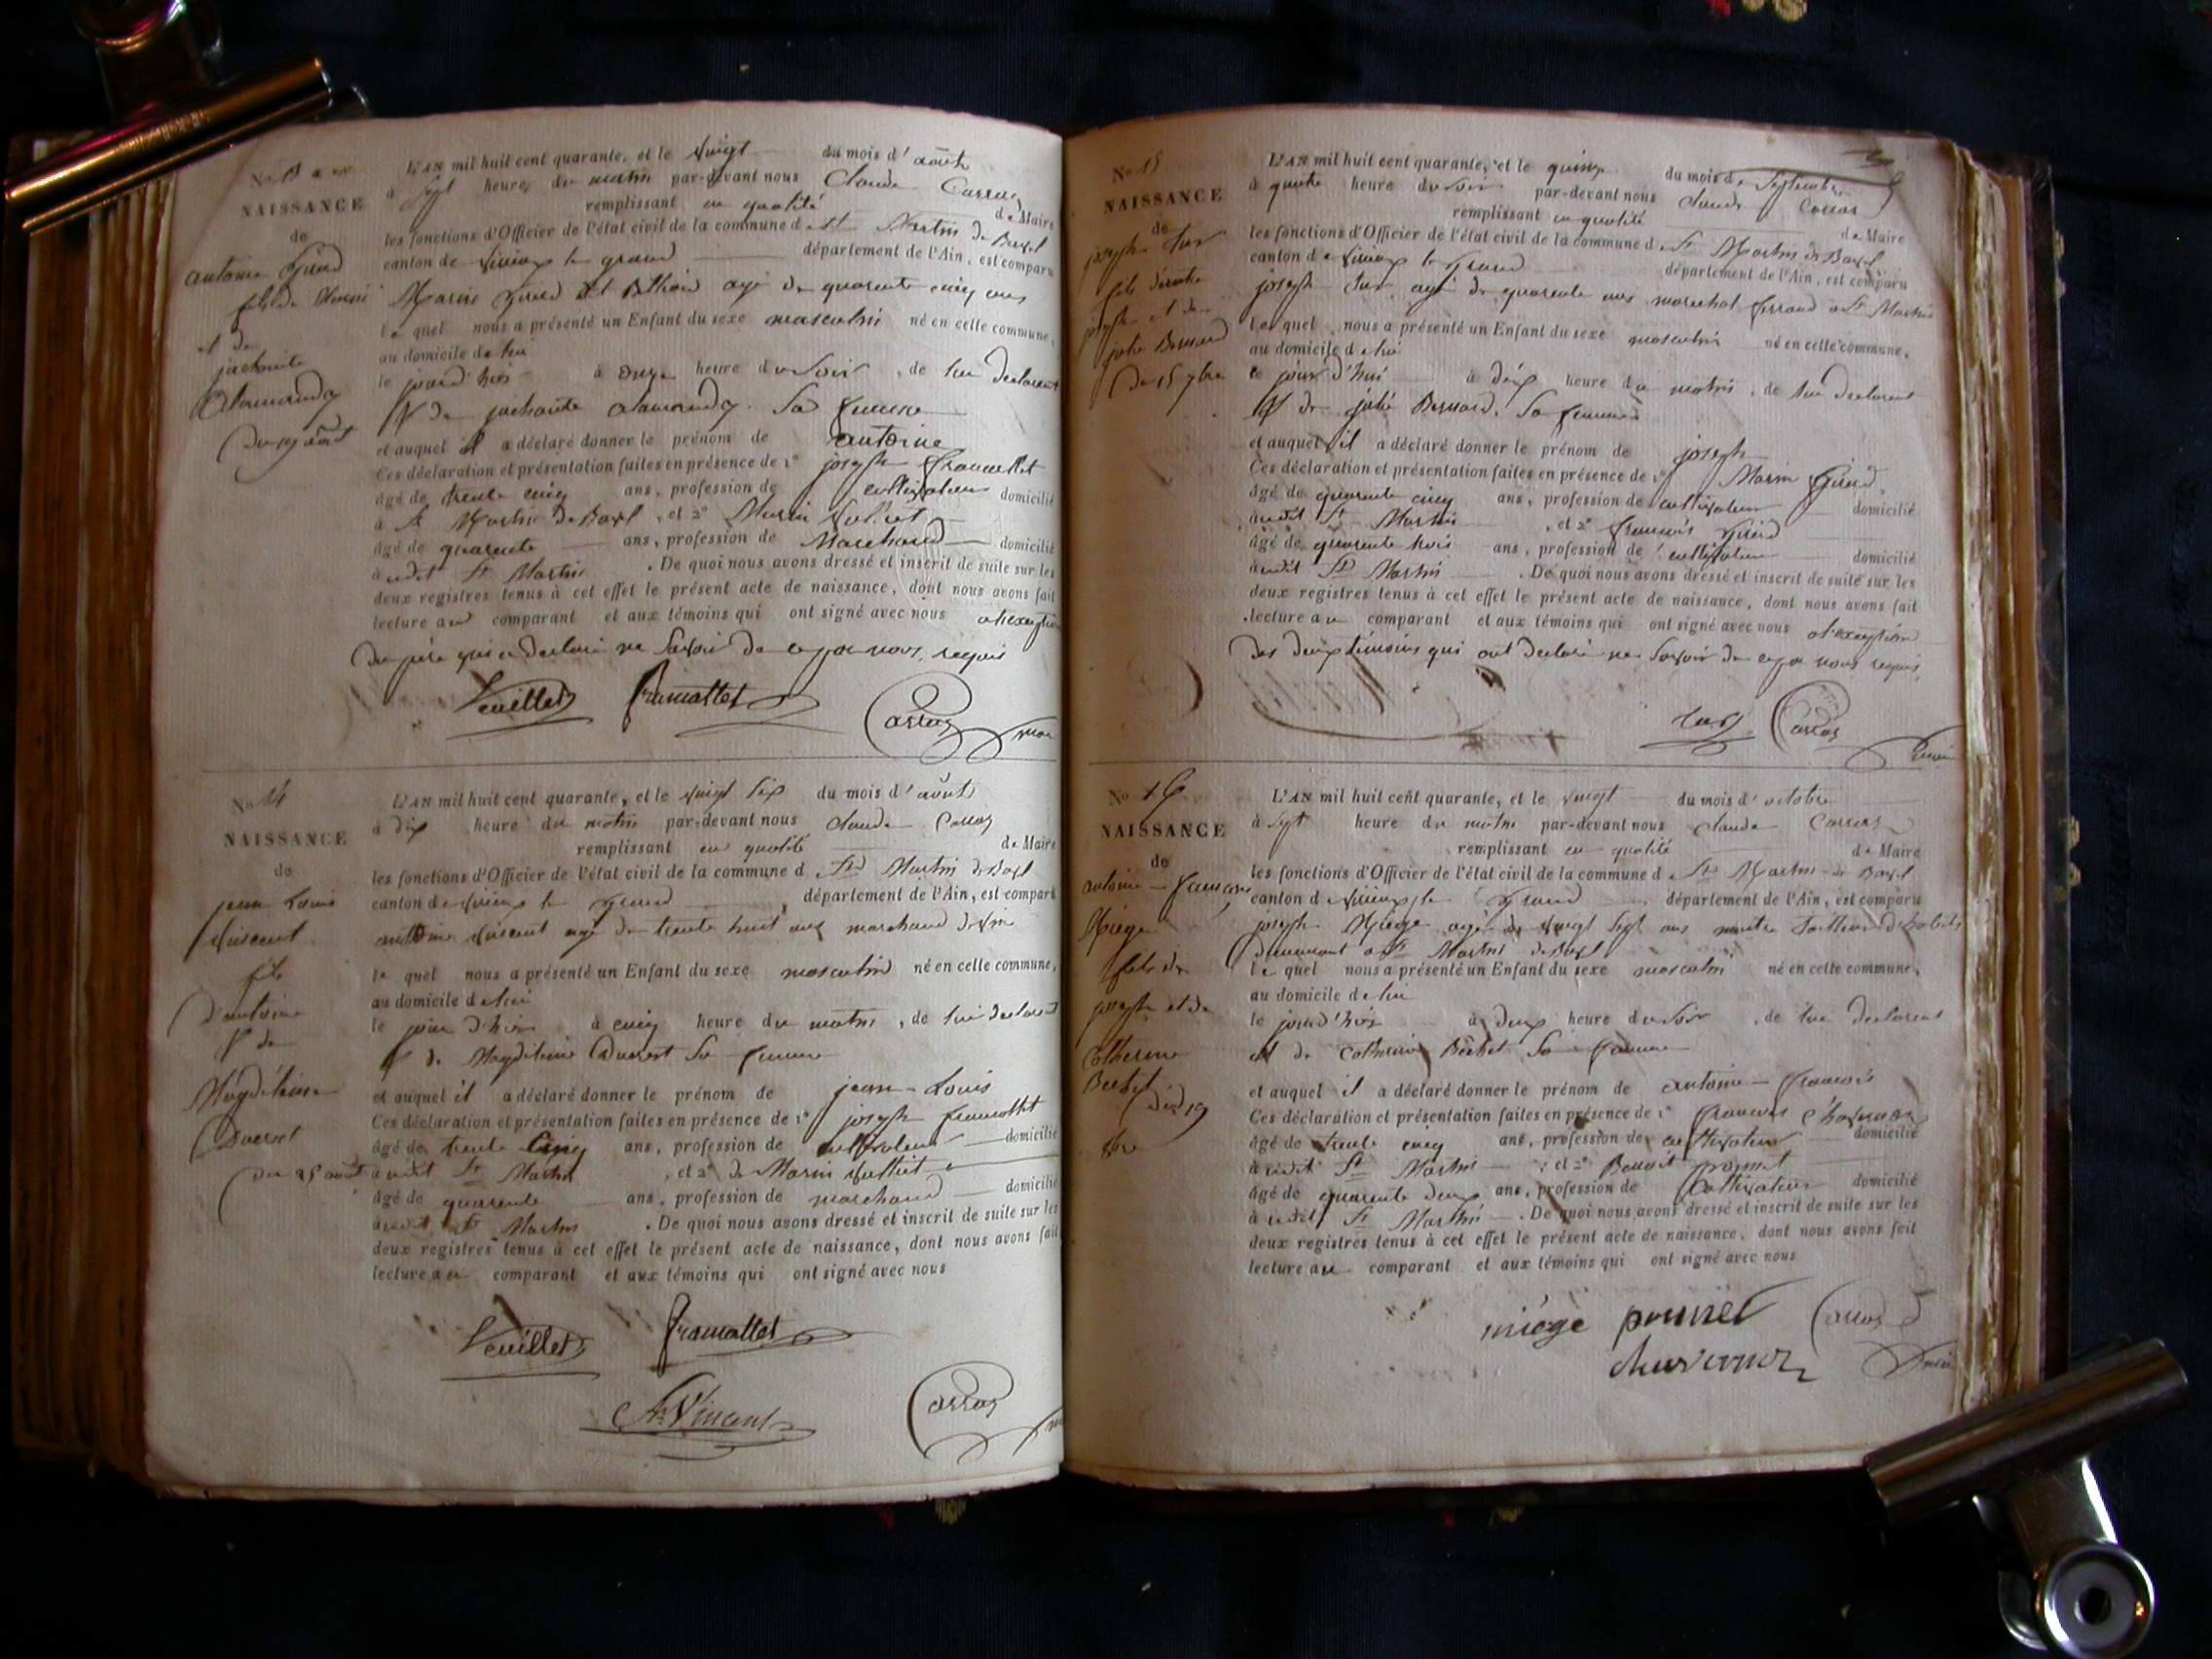 No 13
NAISSANCE
de
antoine
fils de
et de
L'AN mil huit cent quarante, et le vingt du mois d'août
à sept heures du matin par-devant nous Claude Carraz
remplissant en qualité de Maire
les fonctions d'Officier de l'état civil de la commune d St Martin de Bavel
canton de virieux le grand département de l'Ain, est comparu
agé de quarante cinq ans
le quel nous a présenté un Enfant du sexe masculin né en cette commune,
au domicile de lui
le jour d'hier à onze heure du soir, de lui declarant
& de sa femme
et auquel il a déclaré donner le prénom de antoine
Ces déclaration et présentation faites en présence de 1° joseph framottet
âgé de trente cinq ans, profession de cultivateur domicilié
à St Martin de Bavel, et 2° Marin
âgé de quarante ans, profession de Marchand domicilié
audit St Martin . De quoi nous avons dressé et inscrit de suite sur les
deux registres tenus à cet effet le présent acte de naissance, dont nous avons fait
lecture au comparant et aux témoins qui ont signé avec nous a l'exception
du père qui a declaré ne savoir de ce par nous requis
framottet Carraz
No 14
NAISSANCE
de
jean Louis
vincent
fils
d'antoine
& de
Magdelaine
du 25 août
L'AN mil huit cent quarante, et le vingt six du mois d'août
à dix heure du matin par-devant nous claude Carraz
remplissant en qualité de Maire
les fonctions d'Officier de l'état civil de la commune d St Martin de Bavel
canton de virieux le grand département de l'Ain, est comparu
antoine vincent agé de trente huit ans marchand de vin
le quel nous a présenté un Enfant du sexe masculin né en cette commune,
au domicile de lui
le jour d'hier à cinq heure du matin, de lui declarant
& de Magdelaine sa femme
et auquel il a déclaré donner le prénom de jean-Louis
Ces déclaration et présentation faites en présence de 1° joseph framottet
âgé de trente cinq ans, profession de cultivateur domicilié
audit St Martin, et 2° de Marin
âgé de quarante ans, profession de marchand domicilié
audit St Martin . De quoi nous avons dressé et inscrit de suite sur les
deux registres tenus à cet effet le présent acte de naissance, dont nous avons fait
lecture au comparant et aux témoins qui ont signé avec nous
framottet
Vincent Carraz
No 15
NAISSANCE
de
joseph
fils
joseph et de
julie Bernard
du 15 7bre
L'AN mil huit cent quarante, et le quinze du mois de Septembre
à quatre heure du soir par-devant nous claude Carraz
remplissant en qualité de Maire
les fonctions d'Officier de l'état civil de la commune d St Martin de Bavel
canton de virieux le grand département de l'Ain, est comparu
joseph agé de quarante ans marechal ferrand a St Martin
le quel nous a présenté un Enfant du sexe masculin né en cette commune,
au domicile de lui
ce jour d'hui à dix heure du matin, de lui declarant
& de julie Bernard sa femme
et auquel il a déclaré donner le prénom de joseph
Ces déclaration et présentation faites en présence de 1° Marin
âgé de quarante cinq ans, profession de cultivateur domicilié
audit St Martin, et 2° françois
âgé de quarante trois ans, profession de cultivateur domicilié
audit St Martin . De quoi nous avons dressé et inscrit de suite sur les
deux registres tenus à cet effet le présent acte de naissance, dont nous avons fait
lecture au comparant et aux témoins qui ont signé avec nous a l'exception
des deux témoins qui ont declaré ne savoir de ce par nous requis
Carraz
No 16
NAISSANCE
de
antoine-françois
Miège
fils de
joseph et de
Catherine
du 19
8bre
L'AN mil huit cent quarante, et le vingt du mois d'octobre
à sept heure du matin par-devant nous claude Carraz
remplissant en qualité de Maire
les fonctions d'Officier de l'état civil de la commune d St Martin de Bavel
canton de virieux le grand département de l'Ain, est comparu
joseph Miège agé de vingt sept ans maitre tailleur d'habits
demeurant a St Martin de Bavel
le quel nous a présenté un Enfant du sexe masculin né en cette commune,
au domicile de lui
le jour d'hier à deux heure du soir, de lui declarant
et de Catherine sa femme
et auquel il a déclaré donner le prénom de antoine-françois
Ces déclaration et présentation faites en présence de 1° françois
âgé de trente cinq ans, profession de cultivateur domicilié
audit St Martin, et 2° Benoit
âgé de quarante deux ans, profession de Cultivateur domicilié
audit St Martin . De quoi nous avons dressé et inscrit de suite sur les
deux registres tenus à cet effet le présent acte de naissance, dont nous avons fait
lecture au comparant et aux témoins qui ont signé avec nous
miége Carraz